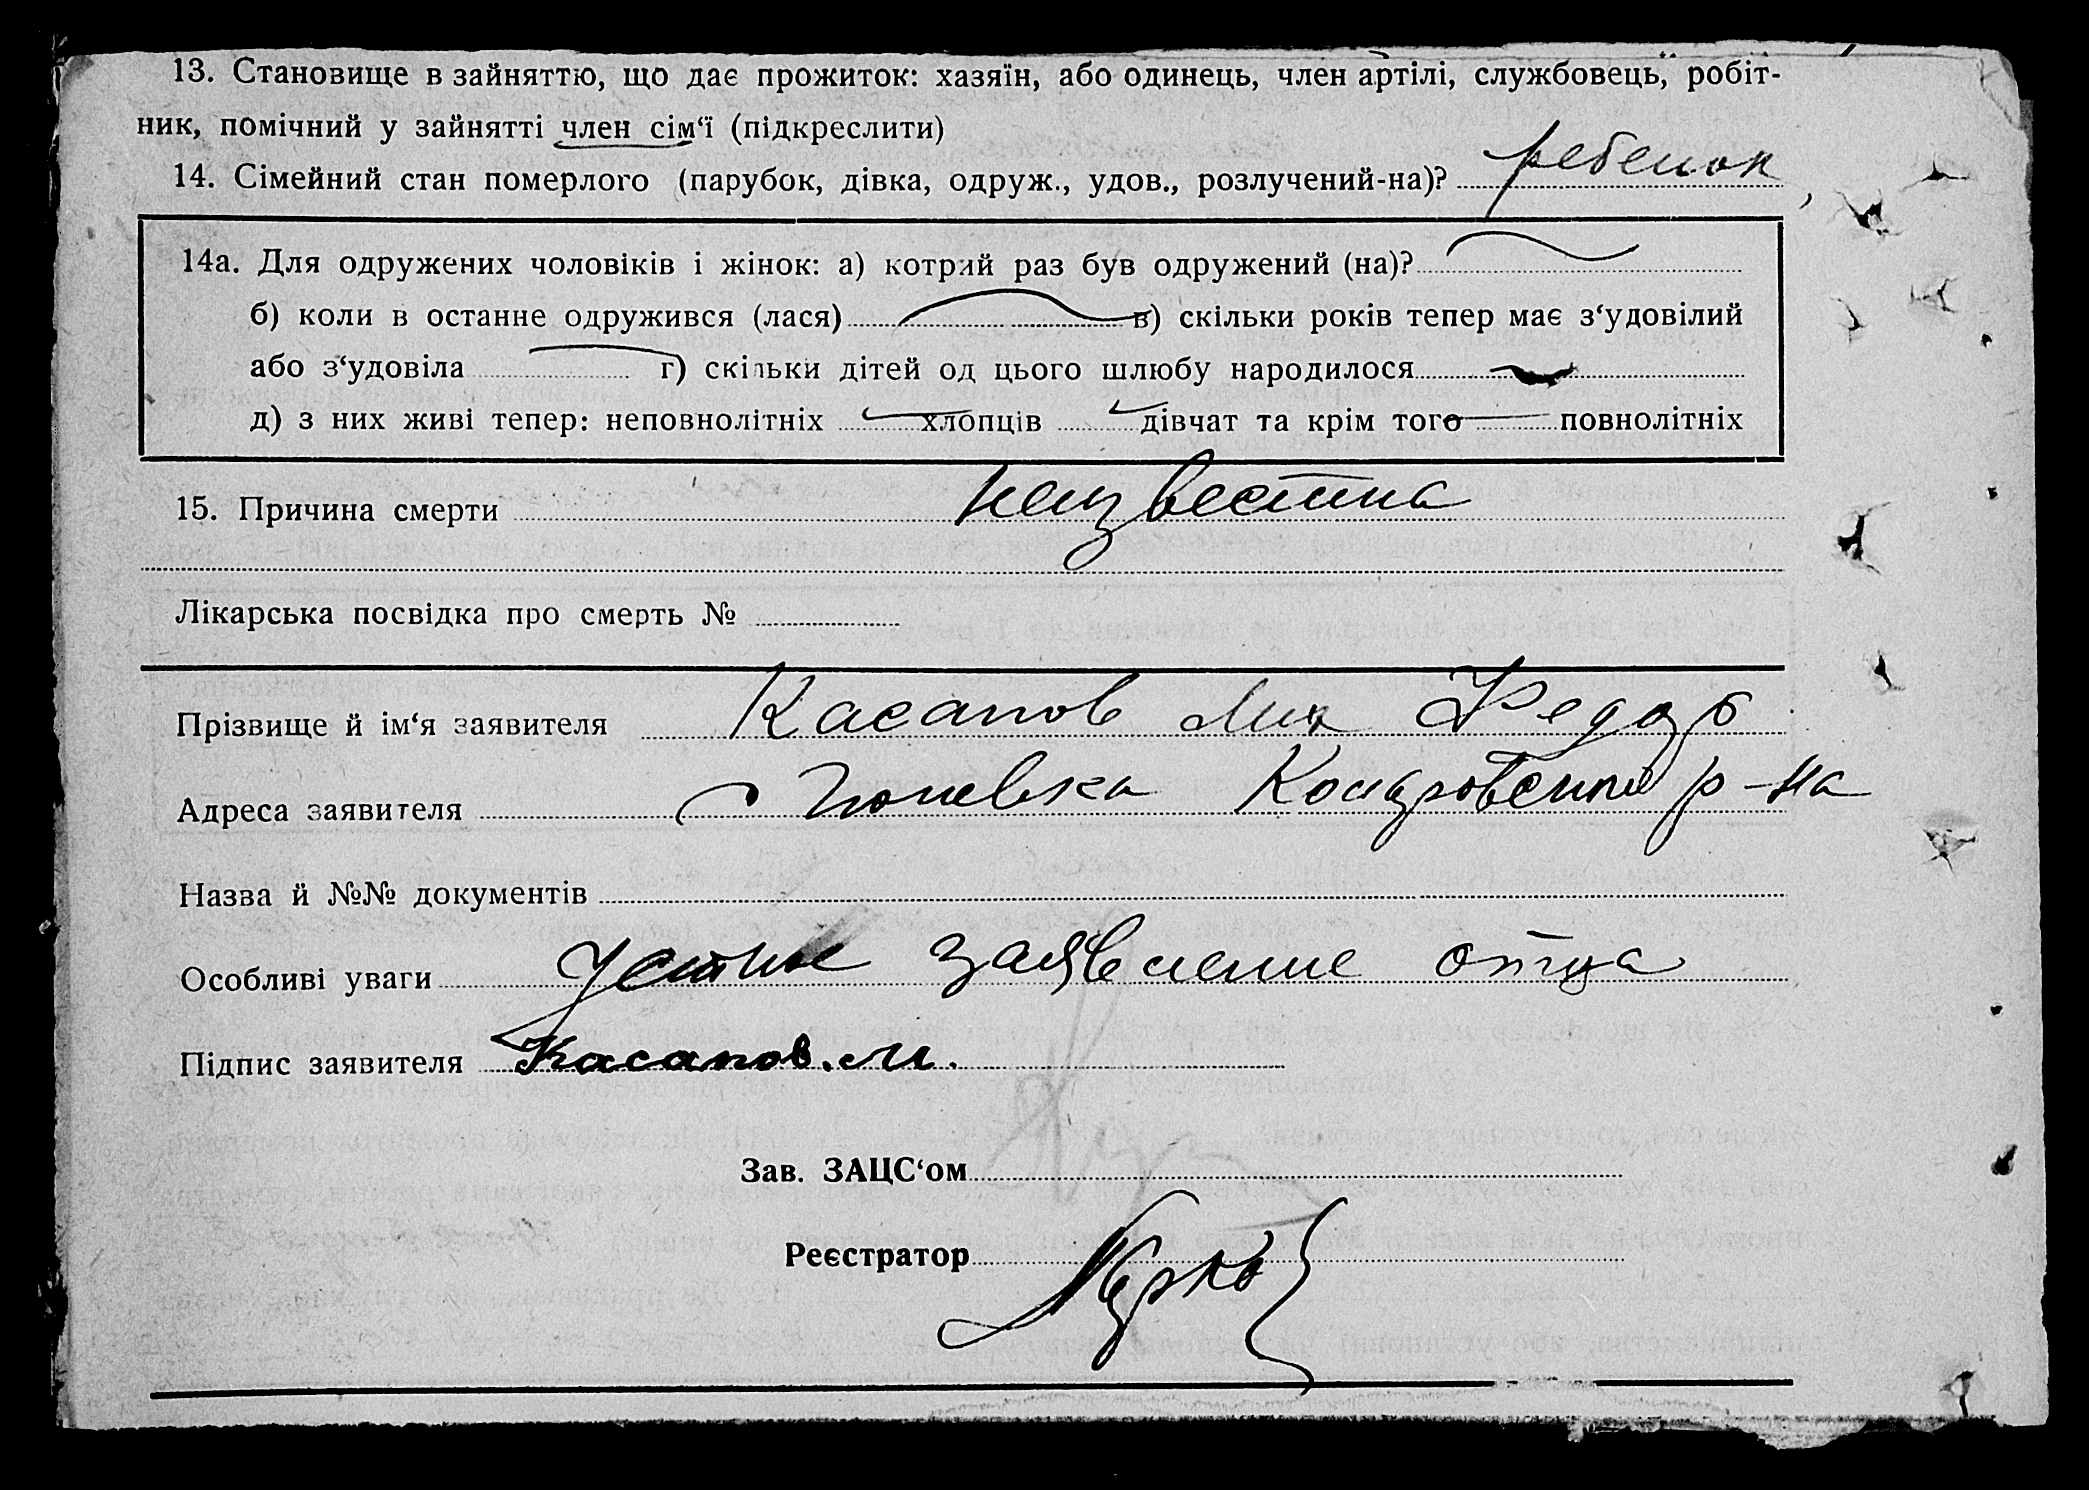 13. Становище в зайняттю, що дає прожиток: хазяїн, або одинець, член артілі, службовець, робіт-
ник, помічний у зайнятті член сім‘ї (підкреслити)
14. Сімейний стан померлого (парубок, дівка, одруж., удов., розлучений-на)? ребенок
14а. Для одружених чоловіків і жінок: а) котрий раз був одружений (на)?
б) коли в останне одружився (лася) в) скільки років тепер має з‘удовілий
або з‘удовіла г) скільки дітей од цього шлюбу народилося
д) з них живі тепер: неповнолітніх хлопців дівчат та крім того повнолітніх
15. Причина смерти неизвестна
Лікарська посвідка про смерть №
Прізвище й ім‘я заявителя Касапов Мих Федор
Адреса заявителя с р-на
Назва й №№ документів
Особливі уваги Устное заявление отца
Підпис заявителя Касапов. М.
Зав. ЗАЦС‘ом
Реєстратор